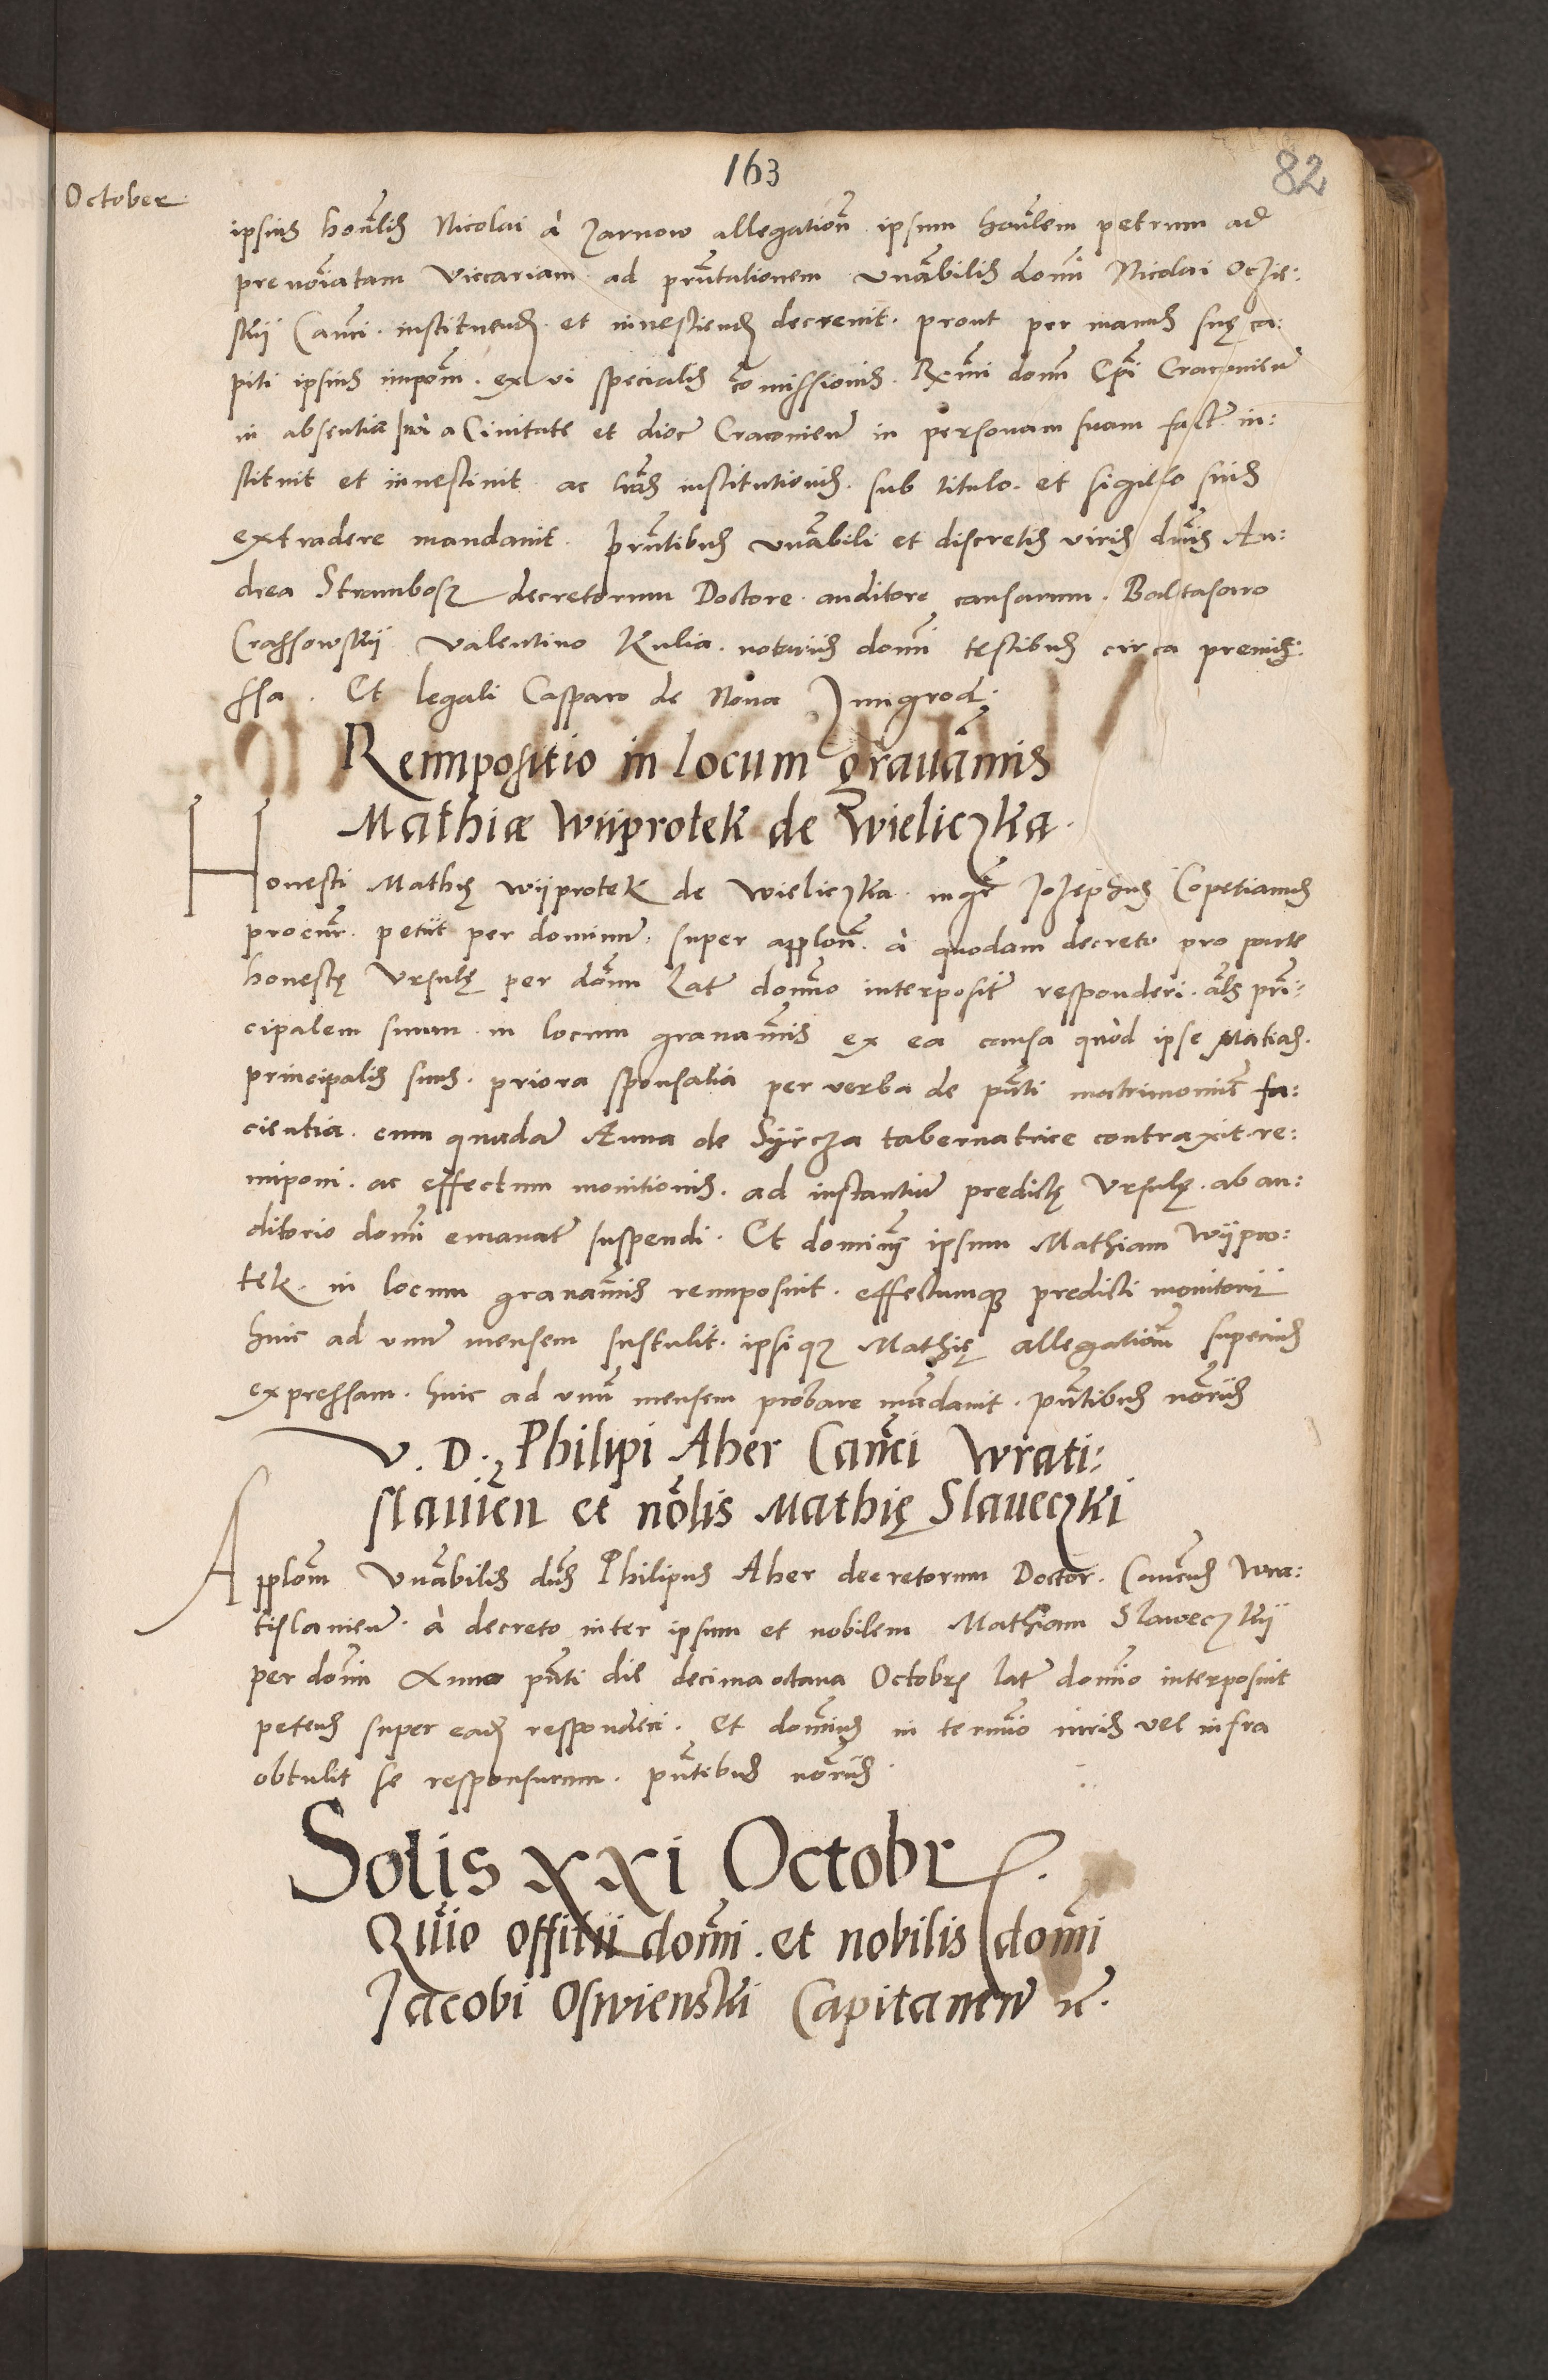 163
82
October
ipsius hon̄lis Nicolai à Zarnow allegation̄ ipsum hon̄lem petrum ad
prenoīatam Viccariam ad prn̄tationem vn̄abilis domī Nicolai Oczie:
skij Can̄ci instituend et inuestiend decreuit. prout per manus suę ca:
piti ipsius impom̄. ex vi specialis cōmissionis. Rx̄mi dom̄ Ep̄i Cracouien̄
in absentia sua a Ciuitate et dioc̄ Cracouien̄ in personam suam fact̄ in:
stituit et inuestiuit ac lrās institutionis. sub titulo. et sigillo suis
extradere mandauit. prn̄tibus vn̄abili et discretis viris dn̄is An:
drea Strambosz decretorum Doctore auditore causarum. Baltasaro
Crassowskij Valentino Kulia. notariis domī testibus circa premis:
ssa. Et legali Casparo de Noua Zmigrod.
Reimpositio in locum grauam̄nis
Mathiæ Wijprotek de Wieliczka.
Honesti Mathię Wijprotek de Wieliczka mḡr Iozephus Copetianus
procur̄. petiit per dominum super applon̄. à quodam decreto pro parte
honestę Vrsulę per dom̄ Lat̄ dom̄no interposit̄ responderi. al̄s prin̄:
cipalem suum in locum grauam̄nis ex ea causa quòd ipse Matias.
principalis suus. priora sponsalia per verba de pn̄ti matrimoniū fa:
cientia. cum quadam Anna de Sijrcza tabernatrice contraxit re:
imponi. ac effectum monitionis. ad instantiam predictę Vrsulę. ab au:
ditorio domī emanat̄ suspendi. Et dominus ipsum Mathiam Wijpro:
tek. in locum grauam̄nis reimposuit. effectumque predicti monitorij
hinc ad vnum mensem sustulit. ipsique Mathię allegationem superius
expressam. hinc ad vnū mensem probare mādauit. pn̄tibus nōriis
V. D. Philipi Aher Can̄ci Wrati:
slauien̄ et nōlis Mathię Slaueczki
Applom̄ Vn̄abilis dn̄s Philipus Aher decretorum Doctor. Can̄cus Wra:
tislauien̄ à decreto inter ipsum et nobilem Mathiam Slaweczkij
per dom̄ Anno pn̄ti die decima octaua Octobr̄ lat̄ dom̄no interposuit
petens super eadem responderi. Et dominus in termīo iuris vel infra
obtulit se responsurum. pn̄tibus nōriis
Solis xxi Octobr
Offitii domī et nobilis domī
Iacobi Oswienskii Capitanen̄